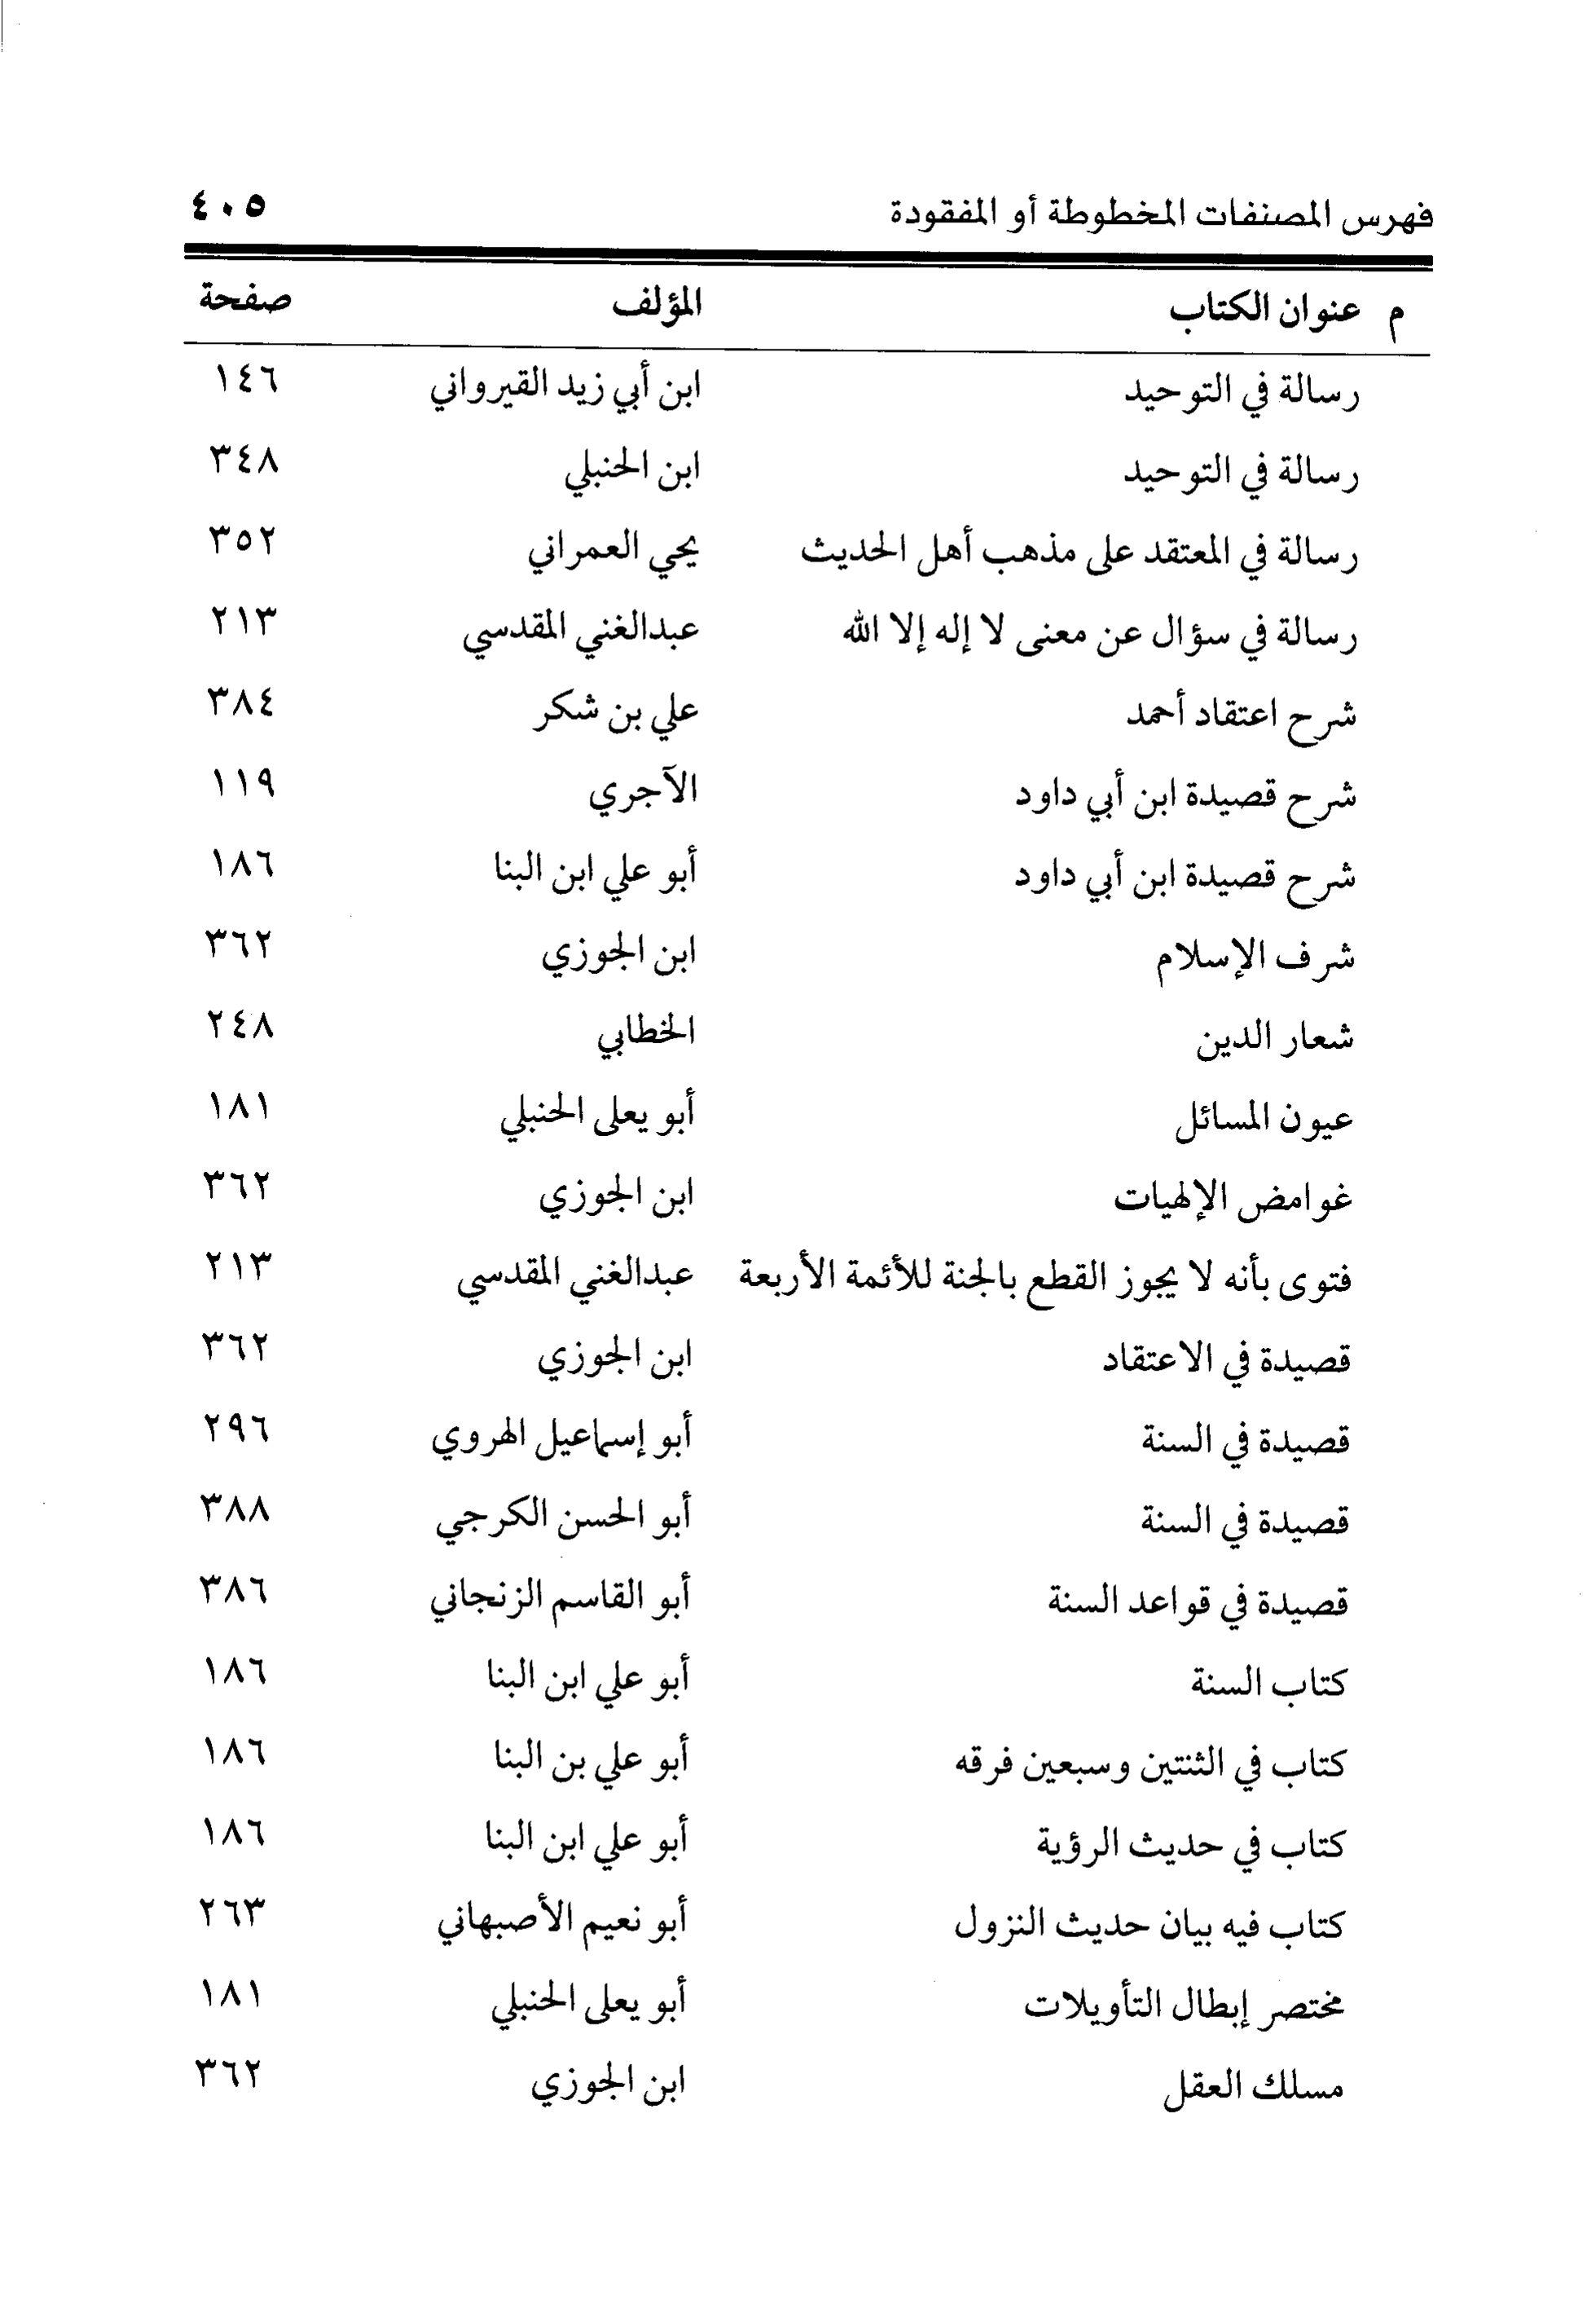 فهرس المصنفات المخطوطة أو المفقودة ٤٠٥
م عنوان الكتاب المؤلف صفحة
رسالة في التوحيد ابن أبي زيد القيرواني ١٤٦
رسالة في التوحيد ابن الحنبلي ٣٤٨
رسالة في المعتقد على مذهب أهل الحديث يحي العمراني ٣٥٢
رسالة في سؤال عن معنى لا إله إلا الله عبدالغني المقدسي ٢١٣
شرح اعتقاد أحمد علي بن شكر ٣٨٤
شرح قصيدة ابن أبي داود الآجري ١١٩
شرح قصيدة ابن أبي داود أبو علي ابن البنا ١٨٦
شرف الإسلام ابن الجوزي ٣٦٢
شعار الدين الخطابي ٢٤٨
عيون المسائل أبو يعلى الحنبلي ١٨١
غوامض الإلهيات ابن الجوزي ٣٦٢
فتوى بأنه لا يجوز القطع بالجنة للأئمة الأربعة عبدالغني المقدسي ٢١٣
قصيدة في الاعتقاد ابن الجوزي ٣٦٢
قصيدة في السنة أبو إسماعيل الهروي ٢٩٦
قصيدة في السنة أبو الحسن الكرجي ٣٨٨
قصيدة في قواعد السنة أبو القاسم الزنجاني ٣٨٦
كتاب السنة أبو علي ابن البنا ١٨٦
كتاب في الثنتين وسبعين فرقه أبو علي بن البنا ١٨٦
كتاب في حديث الرؤية أبو علي ابن البنا ١٨٦
كتاب فيه بيان حديث النزول أبو نعيم الأصبهاني ٢٦٣
مختصر إبطال التأويلات أبو يعلى الحنبلي ١٨١
مسلك العقل ابن الجوزي ٣٦٢